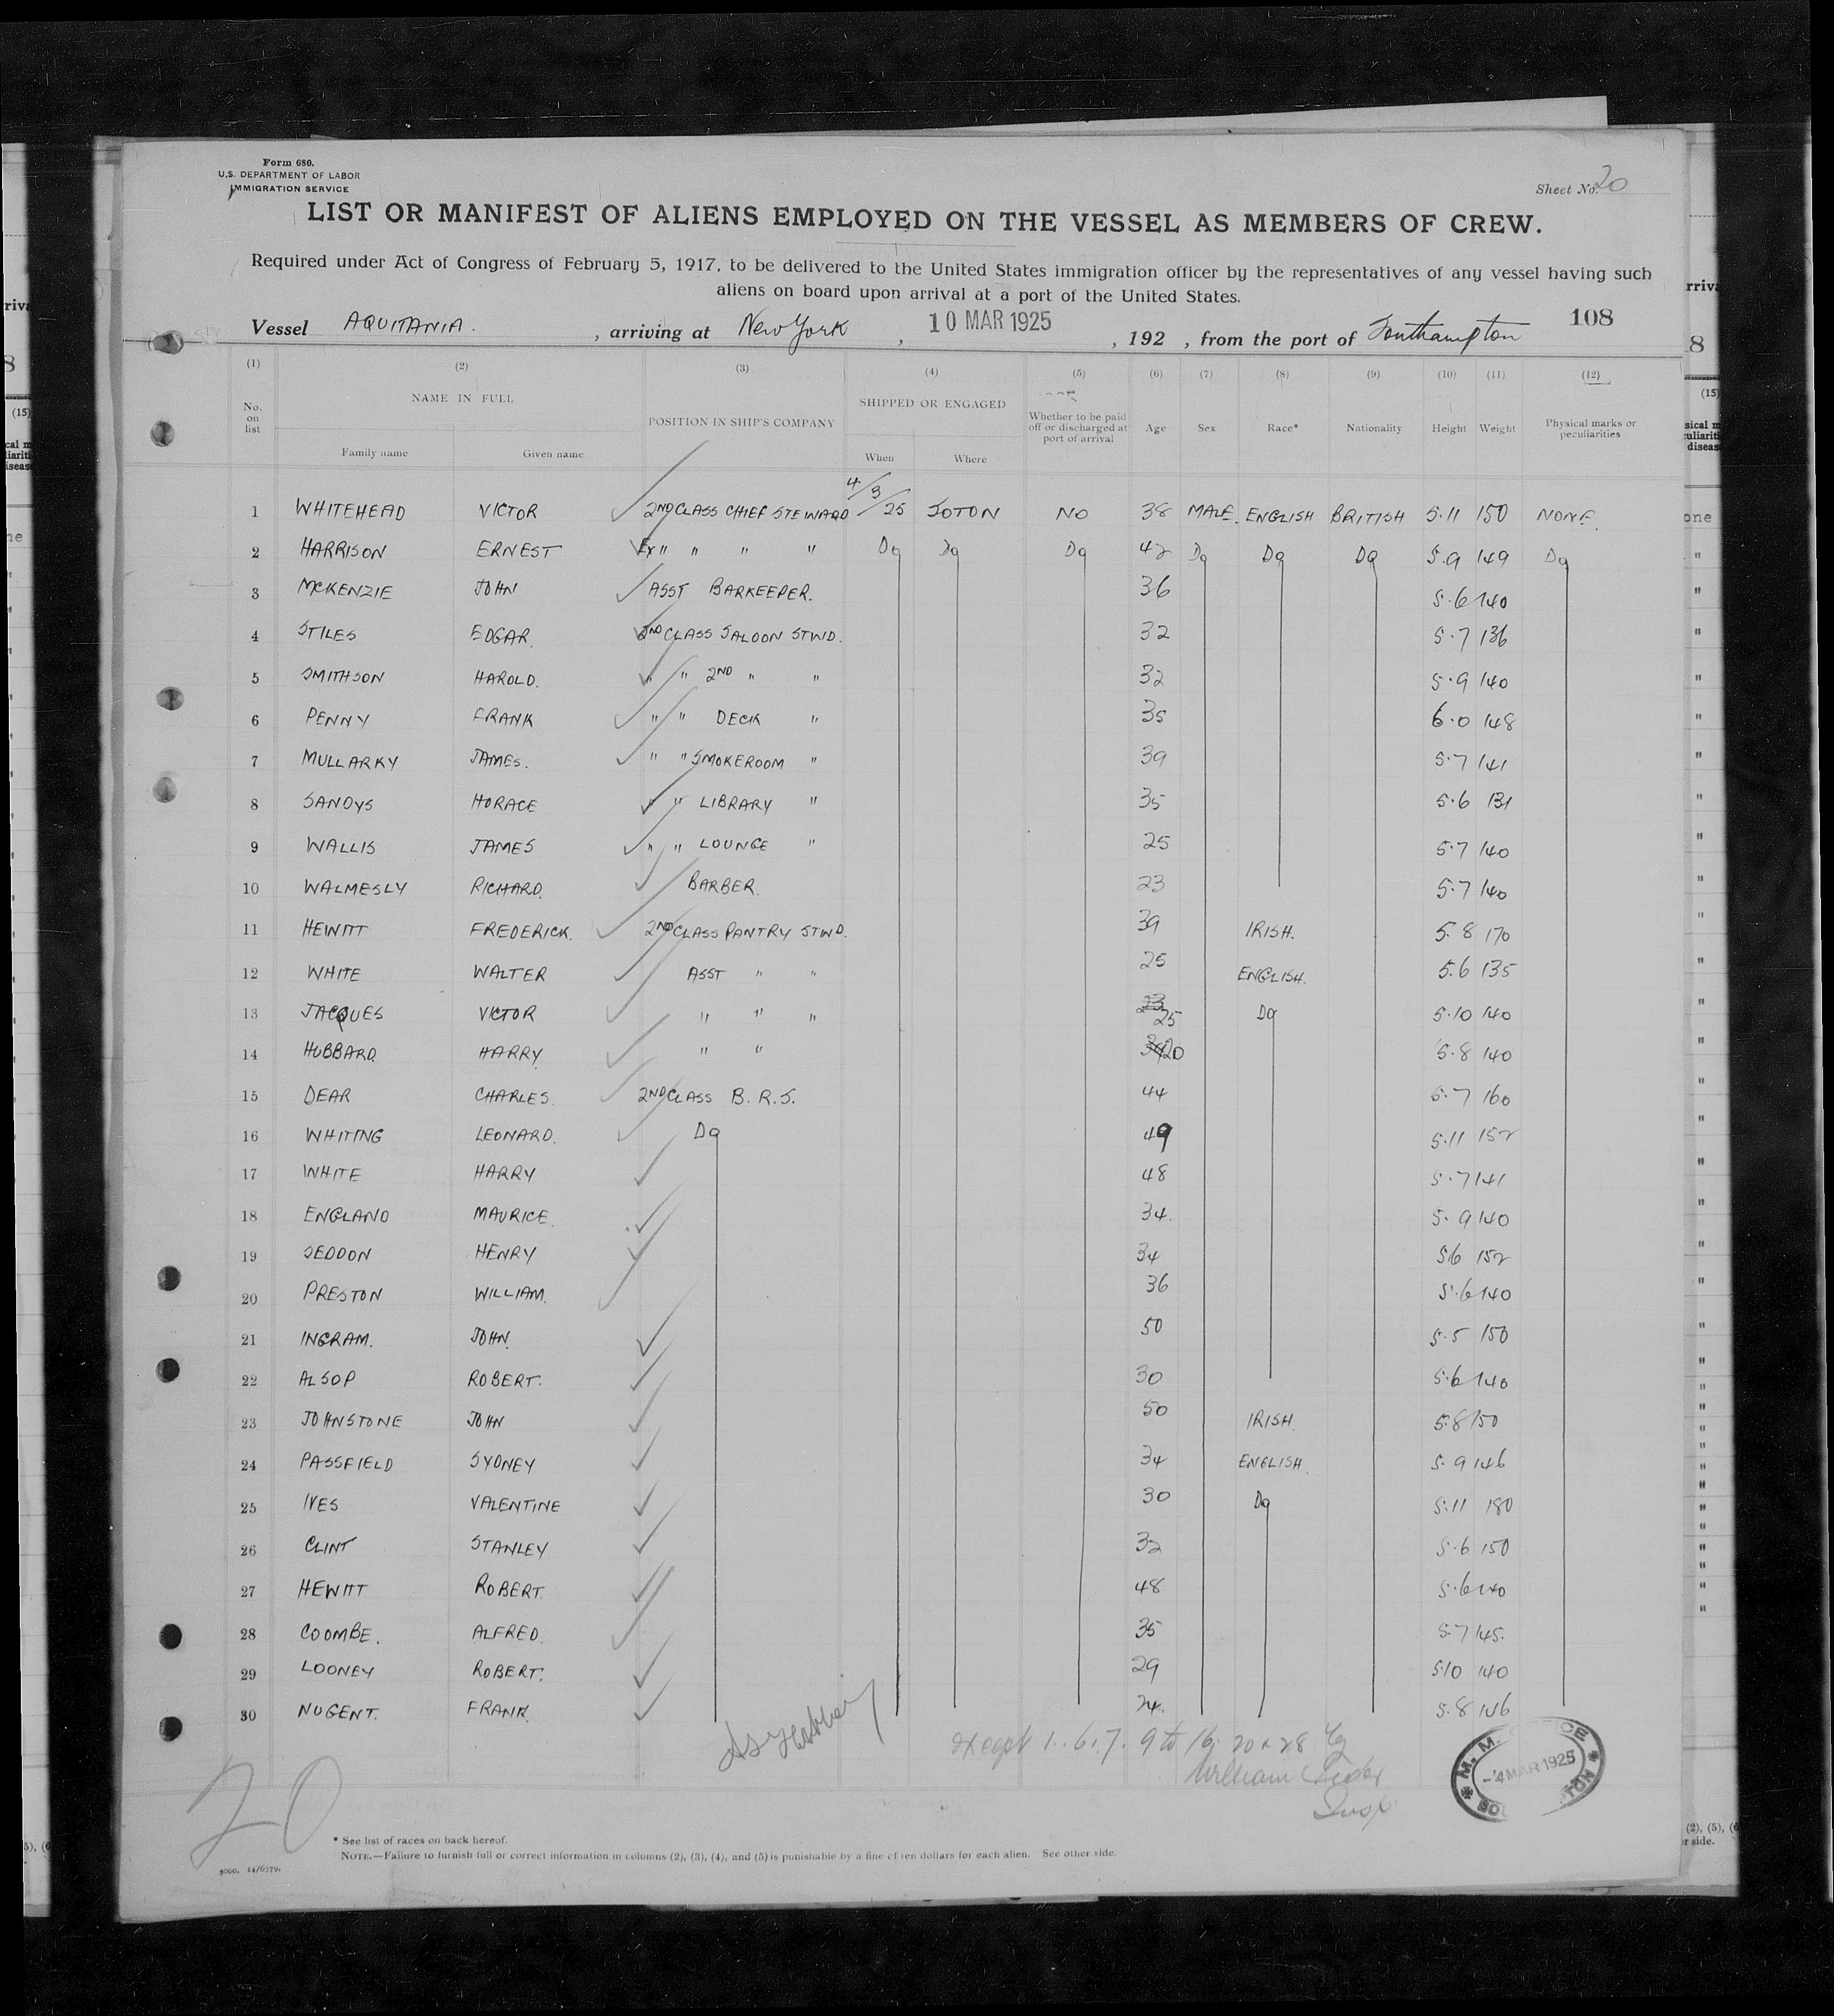 Form 680.
U.S. DEPARTMENT OF LABOR
IMMIGRATION SERVICE
Sheet No. 20
LIST OR MANIFEST OF ALIENS EMPLOYED ON THE VESSEL AS MEMBERS OF CREW.
Required under Act of Congress of February 5, 1917, to be delivered to the United States immigration officer by the representatives of any vessel having such
aliens on board upon arrival at a port of the United States.
108
Vessel AQUITANIA. , arriving at New York , 10 MAR 1925 , 192 , from the port of Southampton
(1) (2) (3) (4) (5) (6) (7) (8) (9) (10) (11) (12)
No. on list NAME IN FULL Family name Given name POSITION IN SHIP'S COMPANY SHIPPED OR ENGAGED When Where Whether to be paid off or discharged at port of arrival Age Sex Race* Nationality Height Weight Physical marks or peculiarities
1 WHITEHEAD VICTOR 2ND CLASS CHIEF STEWARD 4/3/25 SOTON NO 38 MALE. ENGLISH BRITISH 5.11 150 NONE.
2 HARRISON ERNEST Ex " " " " Do Do Do 42 Do Do Do 5.9 149 Do
3 MCKENZIE JOHN ASST BARKEEPER. 36 5.6 140
4 STILES EDGAR. 2ND CLASS SALOON STWD. 32 5.7 136
5 SMITHSON HAROLD. " " 2ND " " 32 5.9 140
6 PENNY FRANK " " DECK " 35 6.0 148
7 MULLARKY JAMES. " " SMOKEROOM " 39 5.7 141
8 SANDYS HORACE " " LIBRARY " 35 5.6 131
9 WALLIS JAMES " " LOUNGE " 25 5.7 140
10 WALMESLY RICHARD. BARBER. 23 5.7 140
11 HEWITT FREDERICK. 2ND CLASS PANTRY STWD. 39 IRISH. 5.8 170
12 WHITE WALTER ASST " " 25 ENGLISH. 5.6 135
13 JACQUES VICTOR " " " 23 25 Do 5.10 140
14 HUBBARD. HARRY. " " 20 5.8 140
15 DEAR CHARLES. 2ND CLASS B.R.S. 44 5.7 160
16 WHITING LEONARD. Do 49 5.11 152
17 WHITE HARRY 48 5.7 141
18 ENGLAND MAURICE. 34. 5.9 140
19 SEDDON HENRY 34 5.6 152
20 PRESTON WILLIAM. 36 5.6 140
21 INGRAM. JOHN. 50 5.5 150
22 ALSOP ROBERT. 30 5.6 140
23 JOHNSTONE JOHN 50 IRISH. 5.8 150
24 PASSFIELD SYDNEY 34 ENGLISH. 5.9 146
25 IVES VALENTINE 30 Do 5.11 180
26 CLINT STANLEY 32 5.6 150
27 HEWITT ROBERT. 48 5.6 140
28 COOMBE. ALFRED. 35 5.7 145.
29 LOONEY ROBERT. 29 5.10 140
30 NUGENT. FRANK. 24. 5.8 146
except 1. 6. 7. 9 to 16. 20 & 28
William
Insp
- 4 MAR 1925
20
* See list of races on back hereof.
NOTE.—Failure to furnish full or correct information in columns (2), (3), (4), and (5) is punishable by a fine of ten dollars for each alien. See other side.
5000. 14/6579.